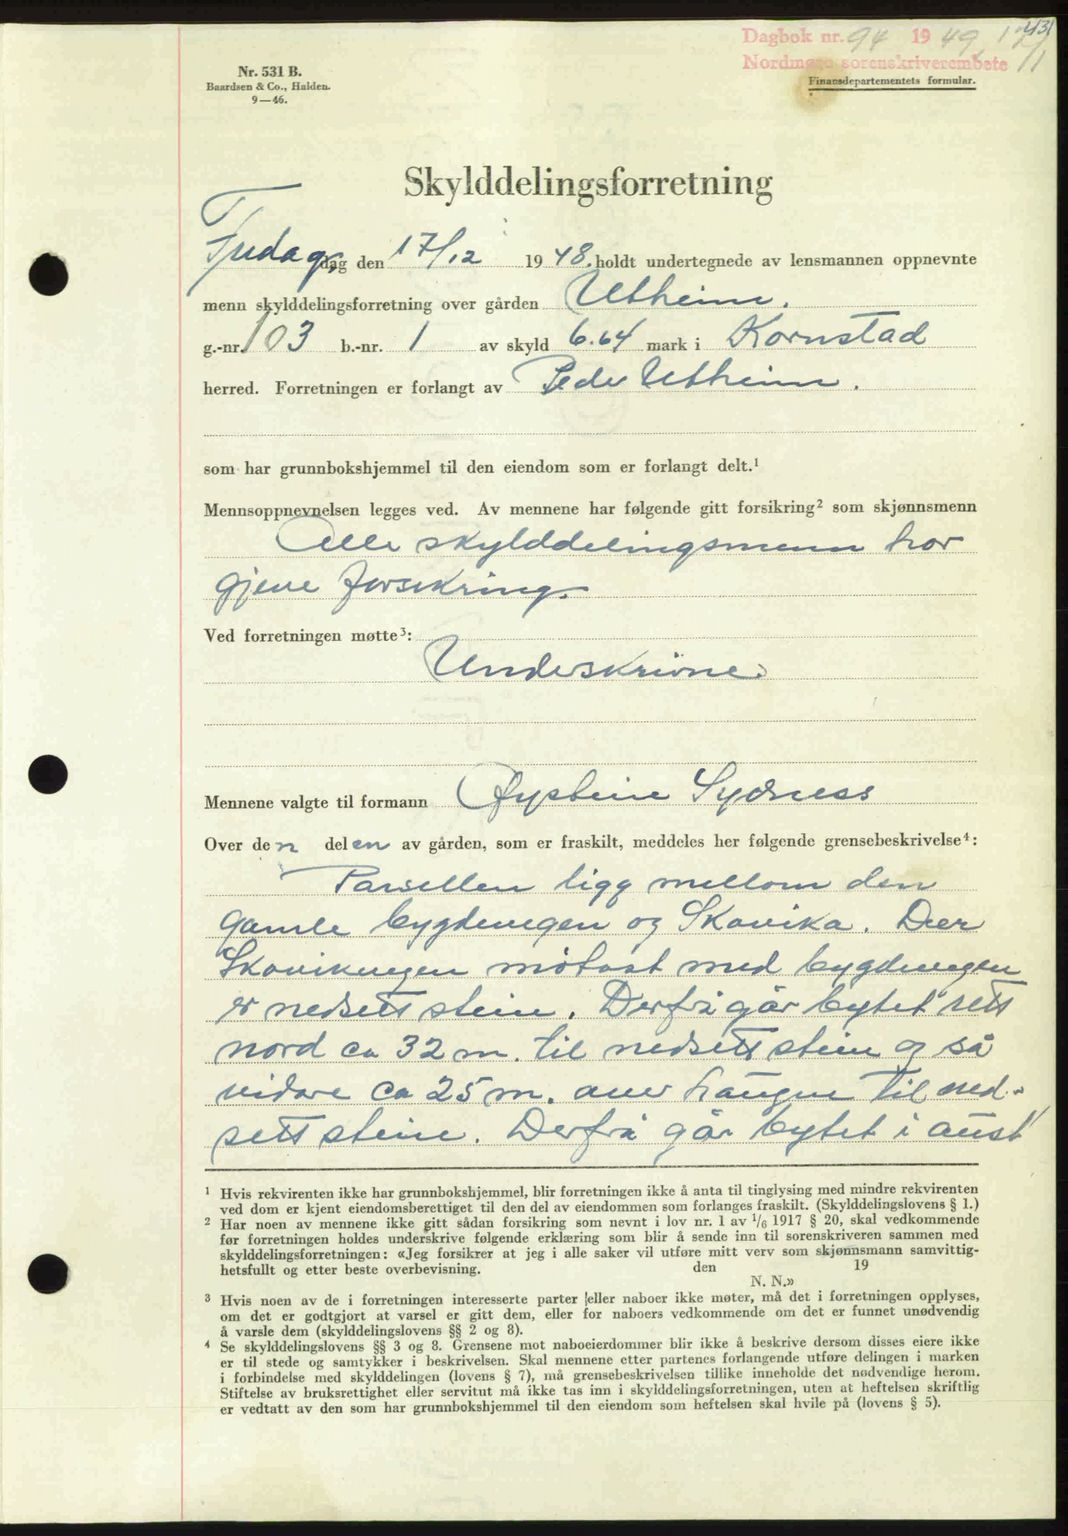 Dagbok nr. 94 1949, 17/1
Nordmøre sorenskriverembete
Nr. 531 B.
Baardsen & Co., Halden.
9—46.
Finansdepartementets formular.
Skylddelingsforretning
Fredag dag den 17/12 1948. holdt undertegnede av lensmannen oppnevnte
menn skylddelingsforretning over gården Utheim.
g.-nr. 103 b.-nr. 1 av skyld 6.64 mark i Kornstad
herred. Forretningen er forlangt av Peder Utheim.
som har grunnbokshjemmel til den eiendom som er forlangt delt.¹
Mennsoppnevnelsen legges ved. Av mennene har følgende gitt forsikring² som skjønnsmenn
Alle skylddelingsmenn har
gjeve forsikring.
Ved forretningen møtte³:
Underskrivne.
Mennene valgte til formann Øystein Sydness
Over den delen av gården, som er fraskilt, meddeles her følgende grensebeskrivelse⁴:
Parsellen ligg mellom den
gamle bygdevegen og Skavika. Der
Skavikvegen møtast med bygdevegen
er nedsett stein. Derfrå går bytet rett
nord ca 32 m. til nedsett stein og så
vidare ca 25 m. over haugen til ned-
sett stein. Derfrå går bytet i aust
¹ Hvis rekvirenten ikke har grunnbokshjemmel, blir forretningen ikke å anta til tinglysing med mindre rekvirenten
ved dom er kjent eiendomsberettiget til den del av eiendommen som forlanges fraskilt. (Skylddelingslovens § 1.)
² Har noen av mennene ikke gitt sådan forsikring som nevnt i lov nr. 1 av 1/6 1917 § 20, skal vedkommende
før forretningen holdes underskrive følgende erklæring som blir å sende inn til sorenskriveren sammen med
skylddelingsforretningen: «Jeg forsikrer at jeg i alle saker vil utføre mitt verv som skjønnsmann samvittig-
hetsfullt og etter beste overbevisning. den 19
N. N.»
³ Hvis noen av de i forretningen interesserte parter eller naboer ikke møter, må det i forretningen opplyses,
om det er godtgjort at varsel er gitt dem, eller for naboers vedkommende om det er funnet unødvendig
å varsle dem (skylddelingslovens §§ 2 og 8).
⁴ Se skylddelingslovens §§ 3 og 8. Grensene mot naboeierdommer blir ikke å beskrive dersom disses eiere ikke
er til stede og samtykker i beskrivelsen. Skal mennene etter partenes forlangende utføre delingen i marken
i forbindelse med skylddelingen (lovens § 7), må grensebeskrivelsen tillike inneholde det nødvendige herom.
Stiftelse av bruksrettighet eller servitut må ikke tas inn i skylddelingsforretningen, uten at heftelsen skriftlig
er vedtatt av den som har grunnbokshjemmel til den eiendom som heftelsen skal hvile på (lovens § 5).